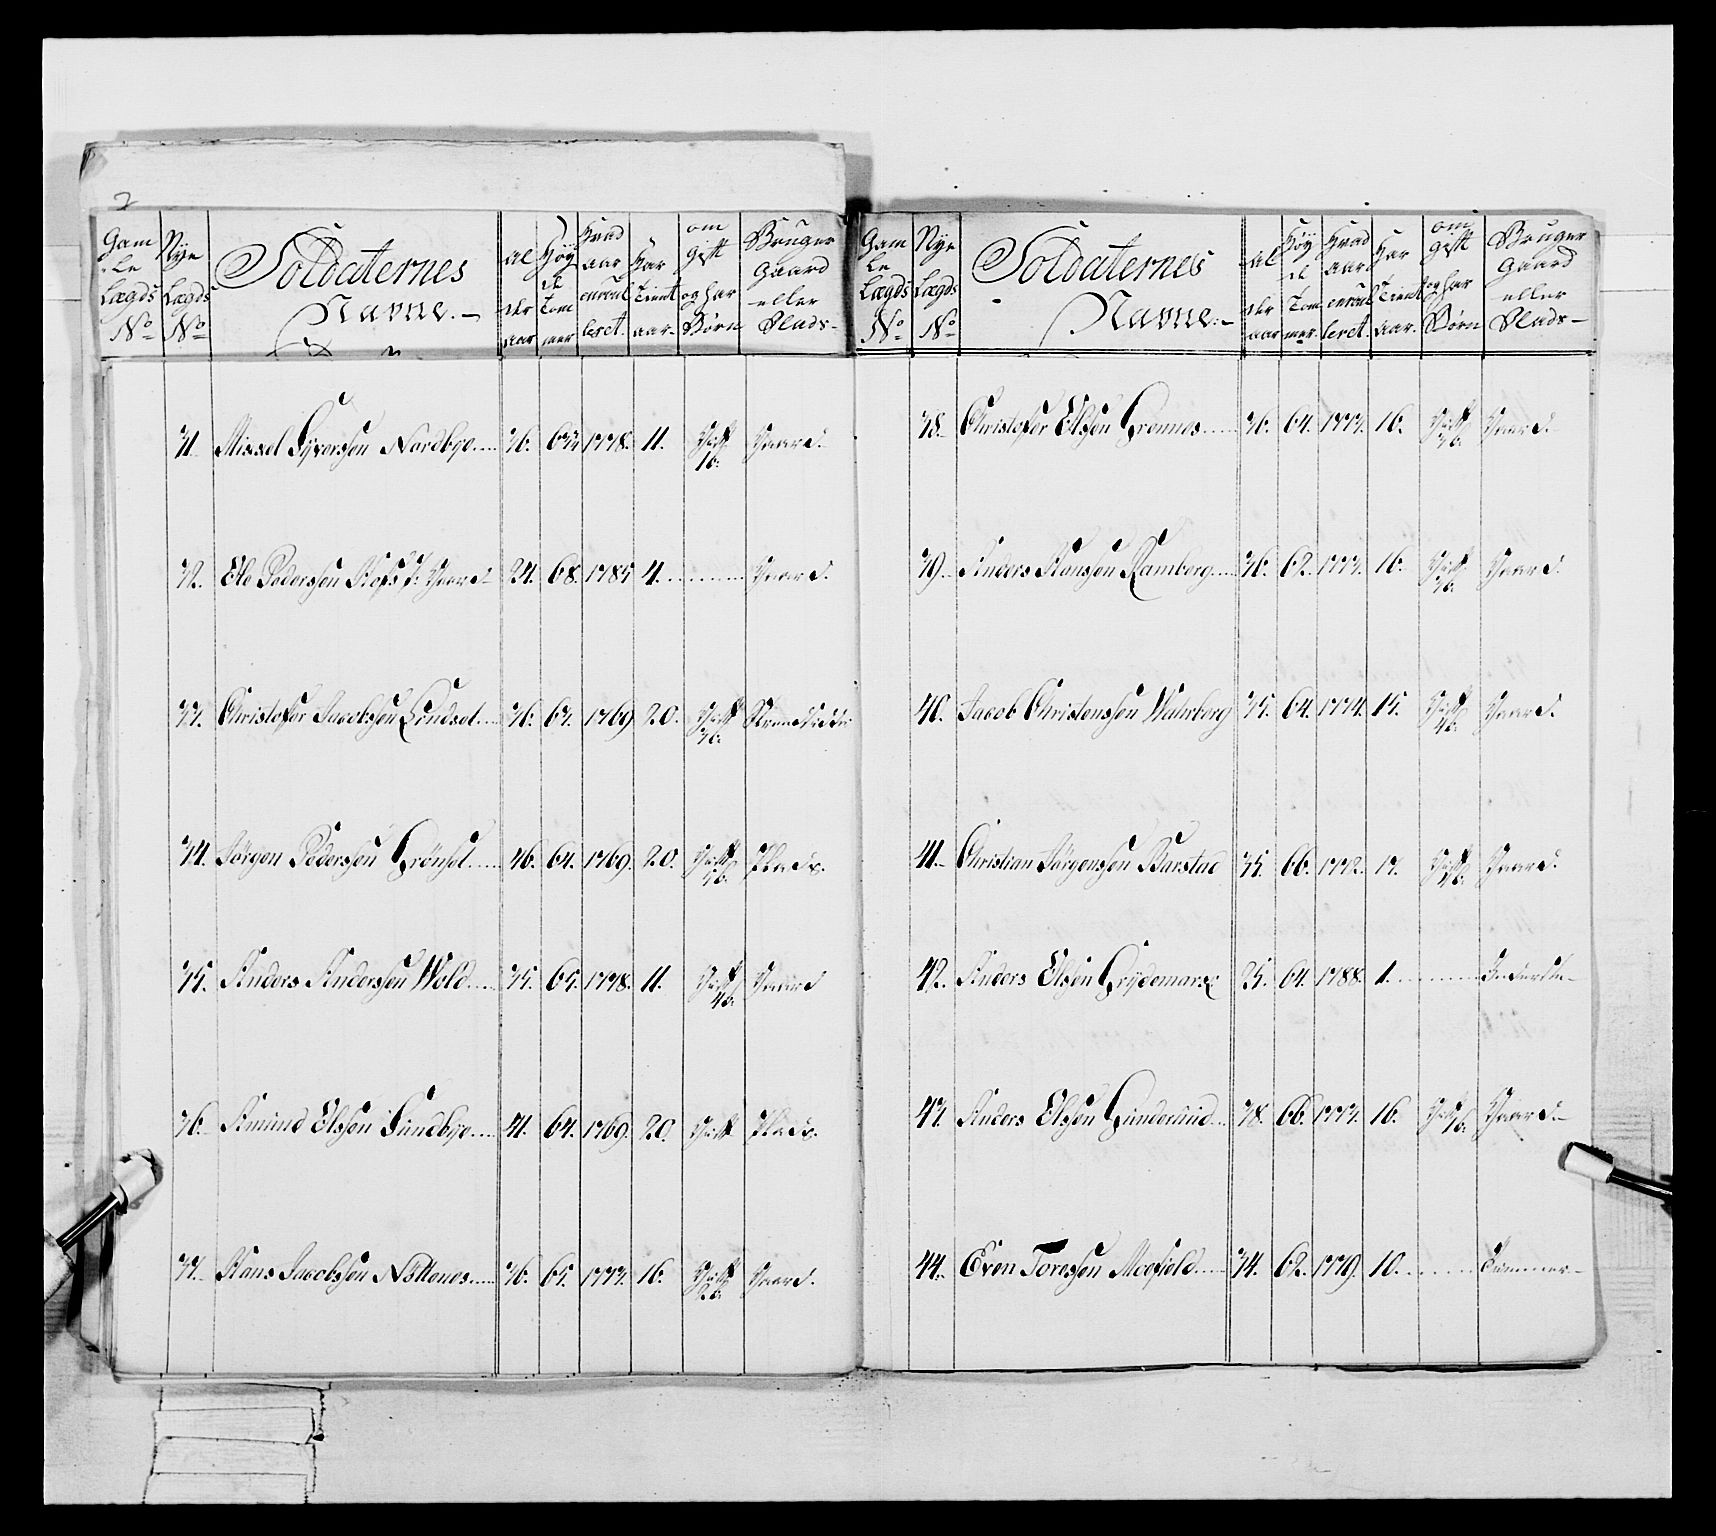 2
Gam le Lægds No | Nye Lægds No | Soldaternes Navne. | Al der aar | Høy de Tom mer | Hvad aar enroul leret. | Har Tient aar. | om gift og har Børn | Bruger Gaard eller Plads
31. Missel Syversen Nordbye 36. 63¾ 1778. 11. Gift 1 b. Gaard.
32. Ole Pedersen Hofs d: Gaard 24. 68. 1785 4. Gaard.
33. Christofer Jacobsen Lindset 36. 63. 1769 20. Gift 3 b.
34. Jørgen Pedersen Grønset 46. 64. 1769. 20. Gift 5 b. Plads.
35. Anders Andersen Wold 35. 65. 1778. 11. Gift 4 b. Gaard
36. Amund Olssen Sundbye 41. 64. 1769. 20. Gift Plads.
37. Hans Jacobsen Nöttenes 36. 65. 1773. 16. Gift 2 b. Gaard.
Gam le Lægds No | Nye Lægds No | Soldaternes Navne. | Al der aar | Høy de Tom mer. | Hvad aar enroul leret. | Har Tient aar. | om gift og har Børn | Bruger Gaard eller Plads
38. Christofer Olsen Grönnes 36. 64. 1773. 16. Gift 3 b. Gaard.
39. Anders Hansen Ramberg 36. 62. 1773. 16. Gift 3 b. Gaard.
40. Jacob Christensen Walrberg 35. 64. 1774. 15. Gift 4 b. Gaard.
41. Christian Jørgensen Barstad 35. 66. 1772. 17. Gift Gaard.
42. Anders Olsen Grÿdemarsk 25. 64. 1788. 1. Inderste
43. Anders Olsen Gunderud 38. 66. 1773. 16. Gift Gaard.
44. Even Toressen Moefield 34. 62. 1779. 10. Tømmer